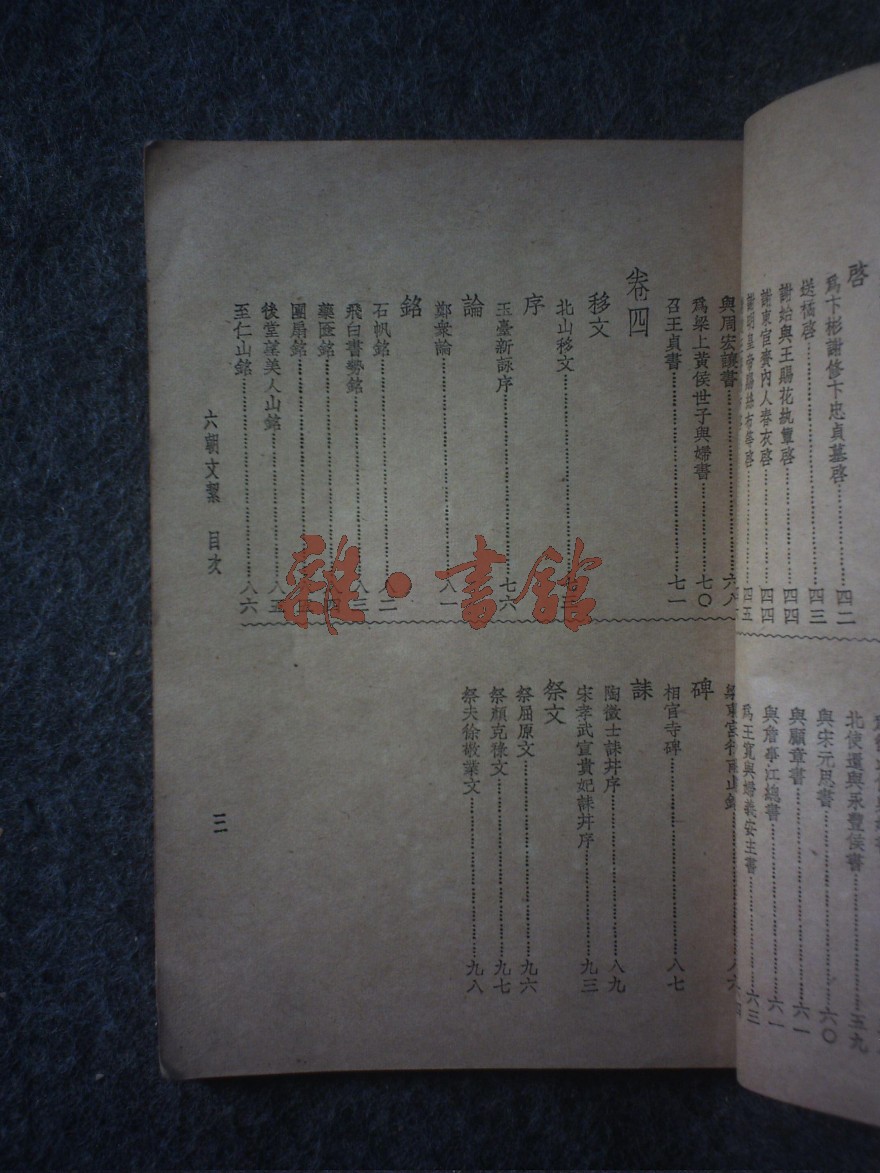 啓
爲卞彬謝修卞忠貞墓啓 四二
送橘啓 四三
謝始興王賜花紈簟啓 四四
謝東宮賚內人春衣啓 四四
謝明皇帝賜絲布等啓 四五
北使還與永豐侯書 五九
與宋元思書 六〇
與顧章書 六一
與詹事江總書 六一
爲王寬與婦義安主書 六三
與周宏讓書 六八
爲梁上黃侯世子與婦書 七〇
召王貞書 七一
卷四
移文
北山移文 七三
序
玉臺新詠序 七六
論
鄭衆論 八一
銘
石帆銘 八二
飛白書勢銘 八三
藥匳銘 八四
團扇銘
後堂望美人山銘 八五
至仁山銘 八六
梁東宮行雨山銘 八六
碑
相官寺碑 八七
誄
陶徵士誄幷序 八九
宋孝武宣貴妃誄幷序 九三
祭文
祭屈原文 九六
祭顏光祿文 九七
祭夫徐敬業文 九八
六朝文絜 目次
三
雜·書館